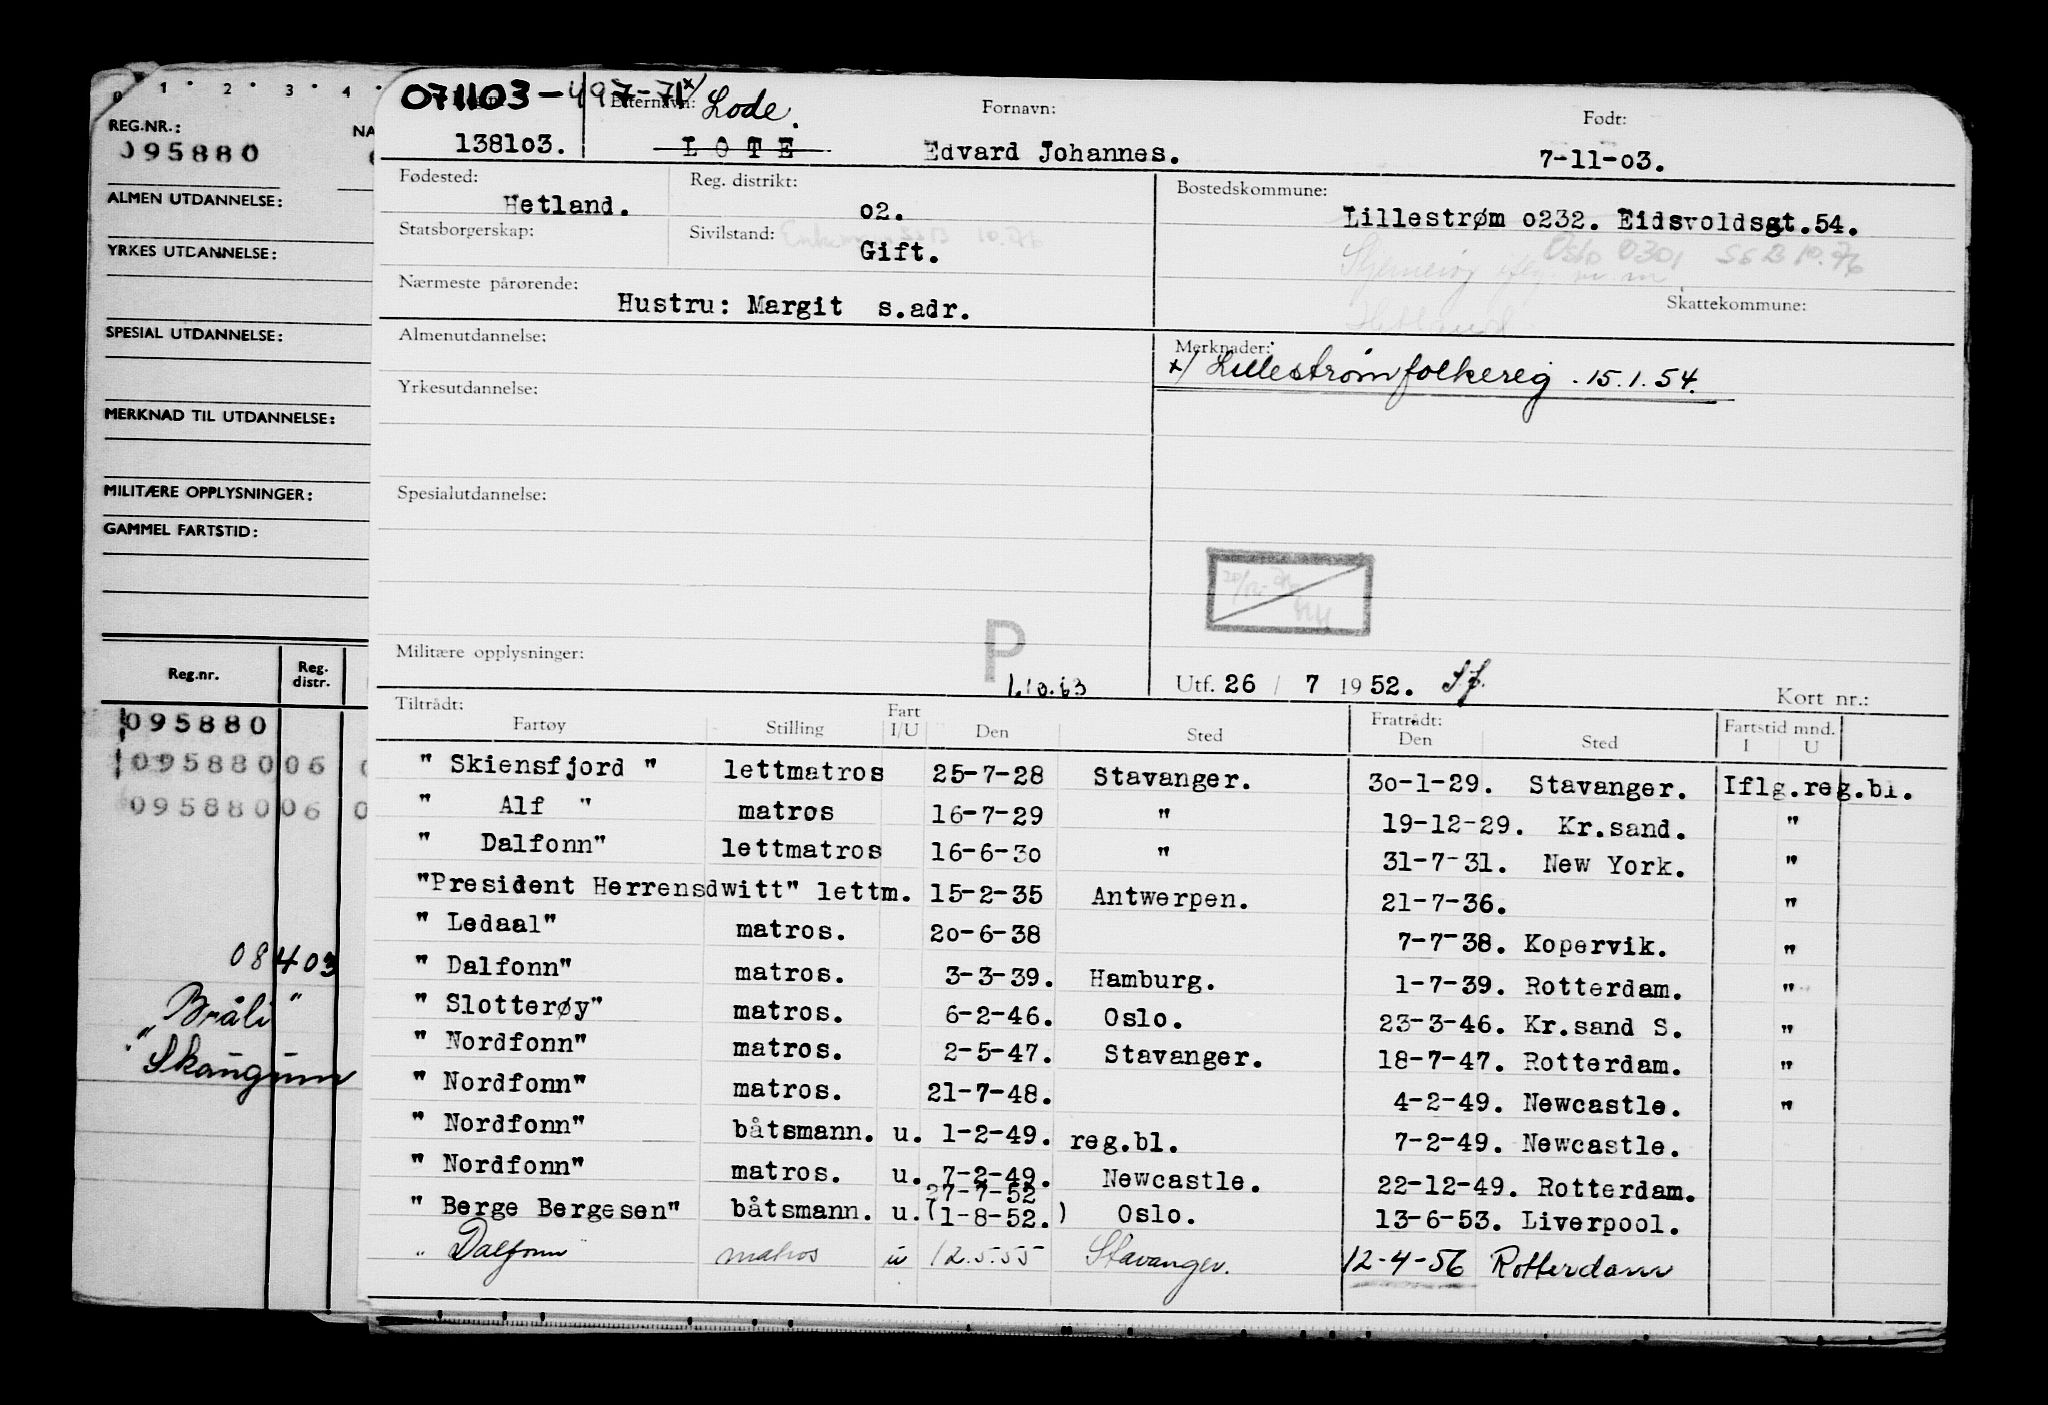 0 1 2 3 4
REG.NR.: NA
095880
ALMEN UTDANNELSE:
YRKES UTDANNELSE:
SPESIAL UTDANNELSE:
MERKNAD TIL UTDANNELSE:
MILITÆRE OPPLYSNINGER:
GAMMEL FARTSTID:
Reg.nr. Reg. distr.
095880
095880 06 0
095880 06 0
08403
"Bråli"
"Skaugum
071103-497-71 x/ Lode.
Etternavn: Fornavn: Født:
138103. LOTE Edvard Johannes. 7-11-03.
Fødested: Reg. distrikt: Bostedskommune:
Hetland. 02. Lillestrøm 0232. Eidsvoldsgt.54.
Statsborgerskap: Sivilstand: Enkemann SSB 10.76
Oslo 0301 SSB 10.76
Gift.
Nærmeste pårørende: Skattekommune:
Hustru: Margit s.adr. Hetland
Almenutdannelse: Merknader:
x/ Lillestrøm folkereg. 15.1.54.
Yrkesutdannelse:
Spesialutdannelse:
Militære opplysninger: P
1.10.63 Utf. 26 / 7 1952. Kort nr.:
Tiltrådt: Fratrådt: Fartstid mnd.
Fartøy Stilling Fart I/U Den Sted Den Sted I U
" Skiensfjord " lettmatros 25-7-28 Stavanger. 30-1-29. Stavanger. Iflg.reg.bl.
" Alf " matros 16-7-29 " 19-12-29. Kr.sand. "
" Dalfonn" lettmatros 16-6-30 " 31-7-31. New York. "
"President Herrensdwitt" lettm. 15-2-35 Antwerpen. 21-7-36. "
" Ledaal" matros. 20-6-38 7-7-38. Kopervik. "
" Dalfonn" matros. 3-3-39. Hamburg. 1-7-39. Rotterdam. "
" Slotterøy" matros. 6-2-46. Oslo. 23-3-46. Kr.sand S. "
" Nordfonn" matros. 2-5-47. Stavanger. 18-7-47. Rotterdam. "
" Nordfonn" matros. 21-7-48. 4-2-49. Newcastle. "
" Nordfonn" båtsmann. u. 1-2-49. reg.bl. 7-2-49. Newcastle.
" Nordfonn" matros. u. 7-2-49. Newcastle. 22-12-49. Rotterdam.
27-7-52
" Berge Bergesen" båtsmann. u. (1-8-52.) Oslo. 13-6-53. Liverpool.
" Dalfonn" matros u 12.5.55 Stavanger. 12-4-56 Rotterdam